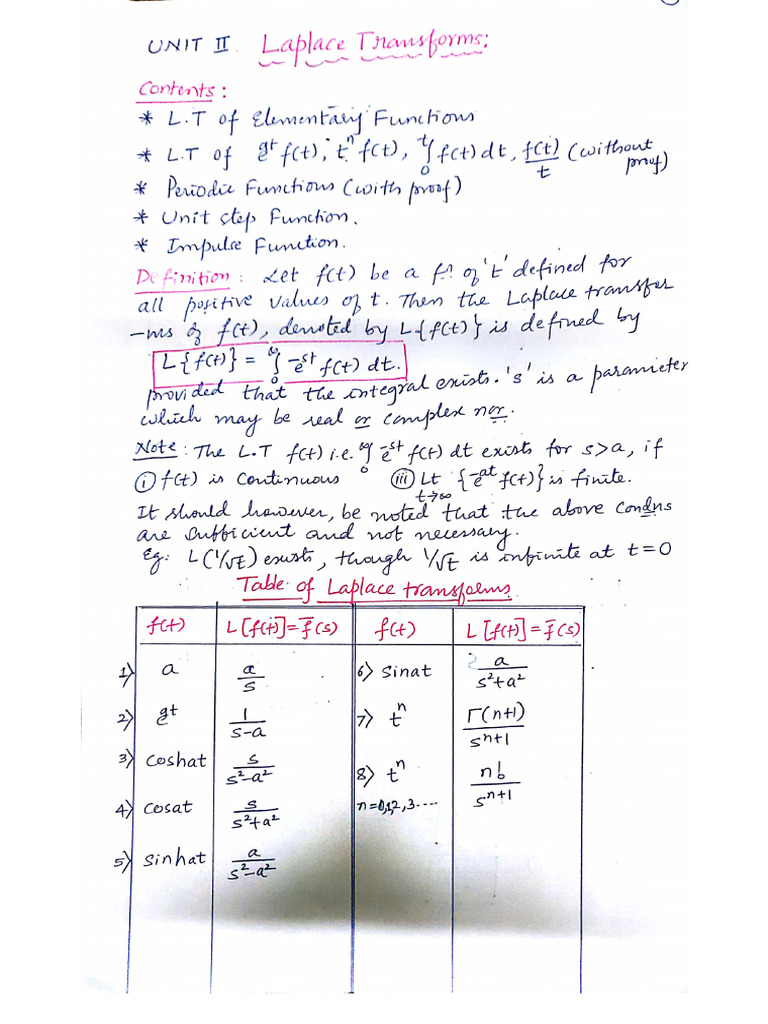 UNIT II Laplace Transforms:
Contents:
* L.T of Elementary Functions
* L.T of e^at f(t), t^n f(t), ∫₀^t f(t) dt, f(t)/t (without proof)
* Periodic Functions (with proof)
* Unit step Function.
* Impulse Function.
Definition: Let f(t) be a fn. of 't' defined for
all positive values of t. Then the Laplace transfor
-ms of f(t), denoted by L{f(t)} is defined by
L{f(t)} = ∫₀^∞ e^-st f(t) dt.
provided that the integral exists. 's' is a parameter
which may be real or complex nor.
Note: The L.T f(t) i.e. ∫₀^∞ e^-st f(t) dt exists for s>a, if
(i) f(t) is continuous (iii) Lt t→∞ {e^-at f(t)} is finite.
It should however, be noted that the above condns
are sufficient and not necessary.
Eg: L(1/√t) exists, though 1/√t is infinite at t=0
Table of Laplace transforms
f(t) L[f(t)]=f̄(s) f(t) L[f(t)]=f̄(s)
1) a a/s 6) sinat a/(s²+a²)
2) e^at 1/(s-a) 7) t^n Γ(n+1)/s^(n+1)
3) coshat s/(s²-a²) 8) t^n n!/s^(n+1)
4) cosat s/(s²+a²) n=0,1,2,3....
5) sinhat a/(s²-a²)